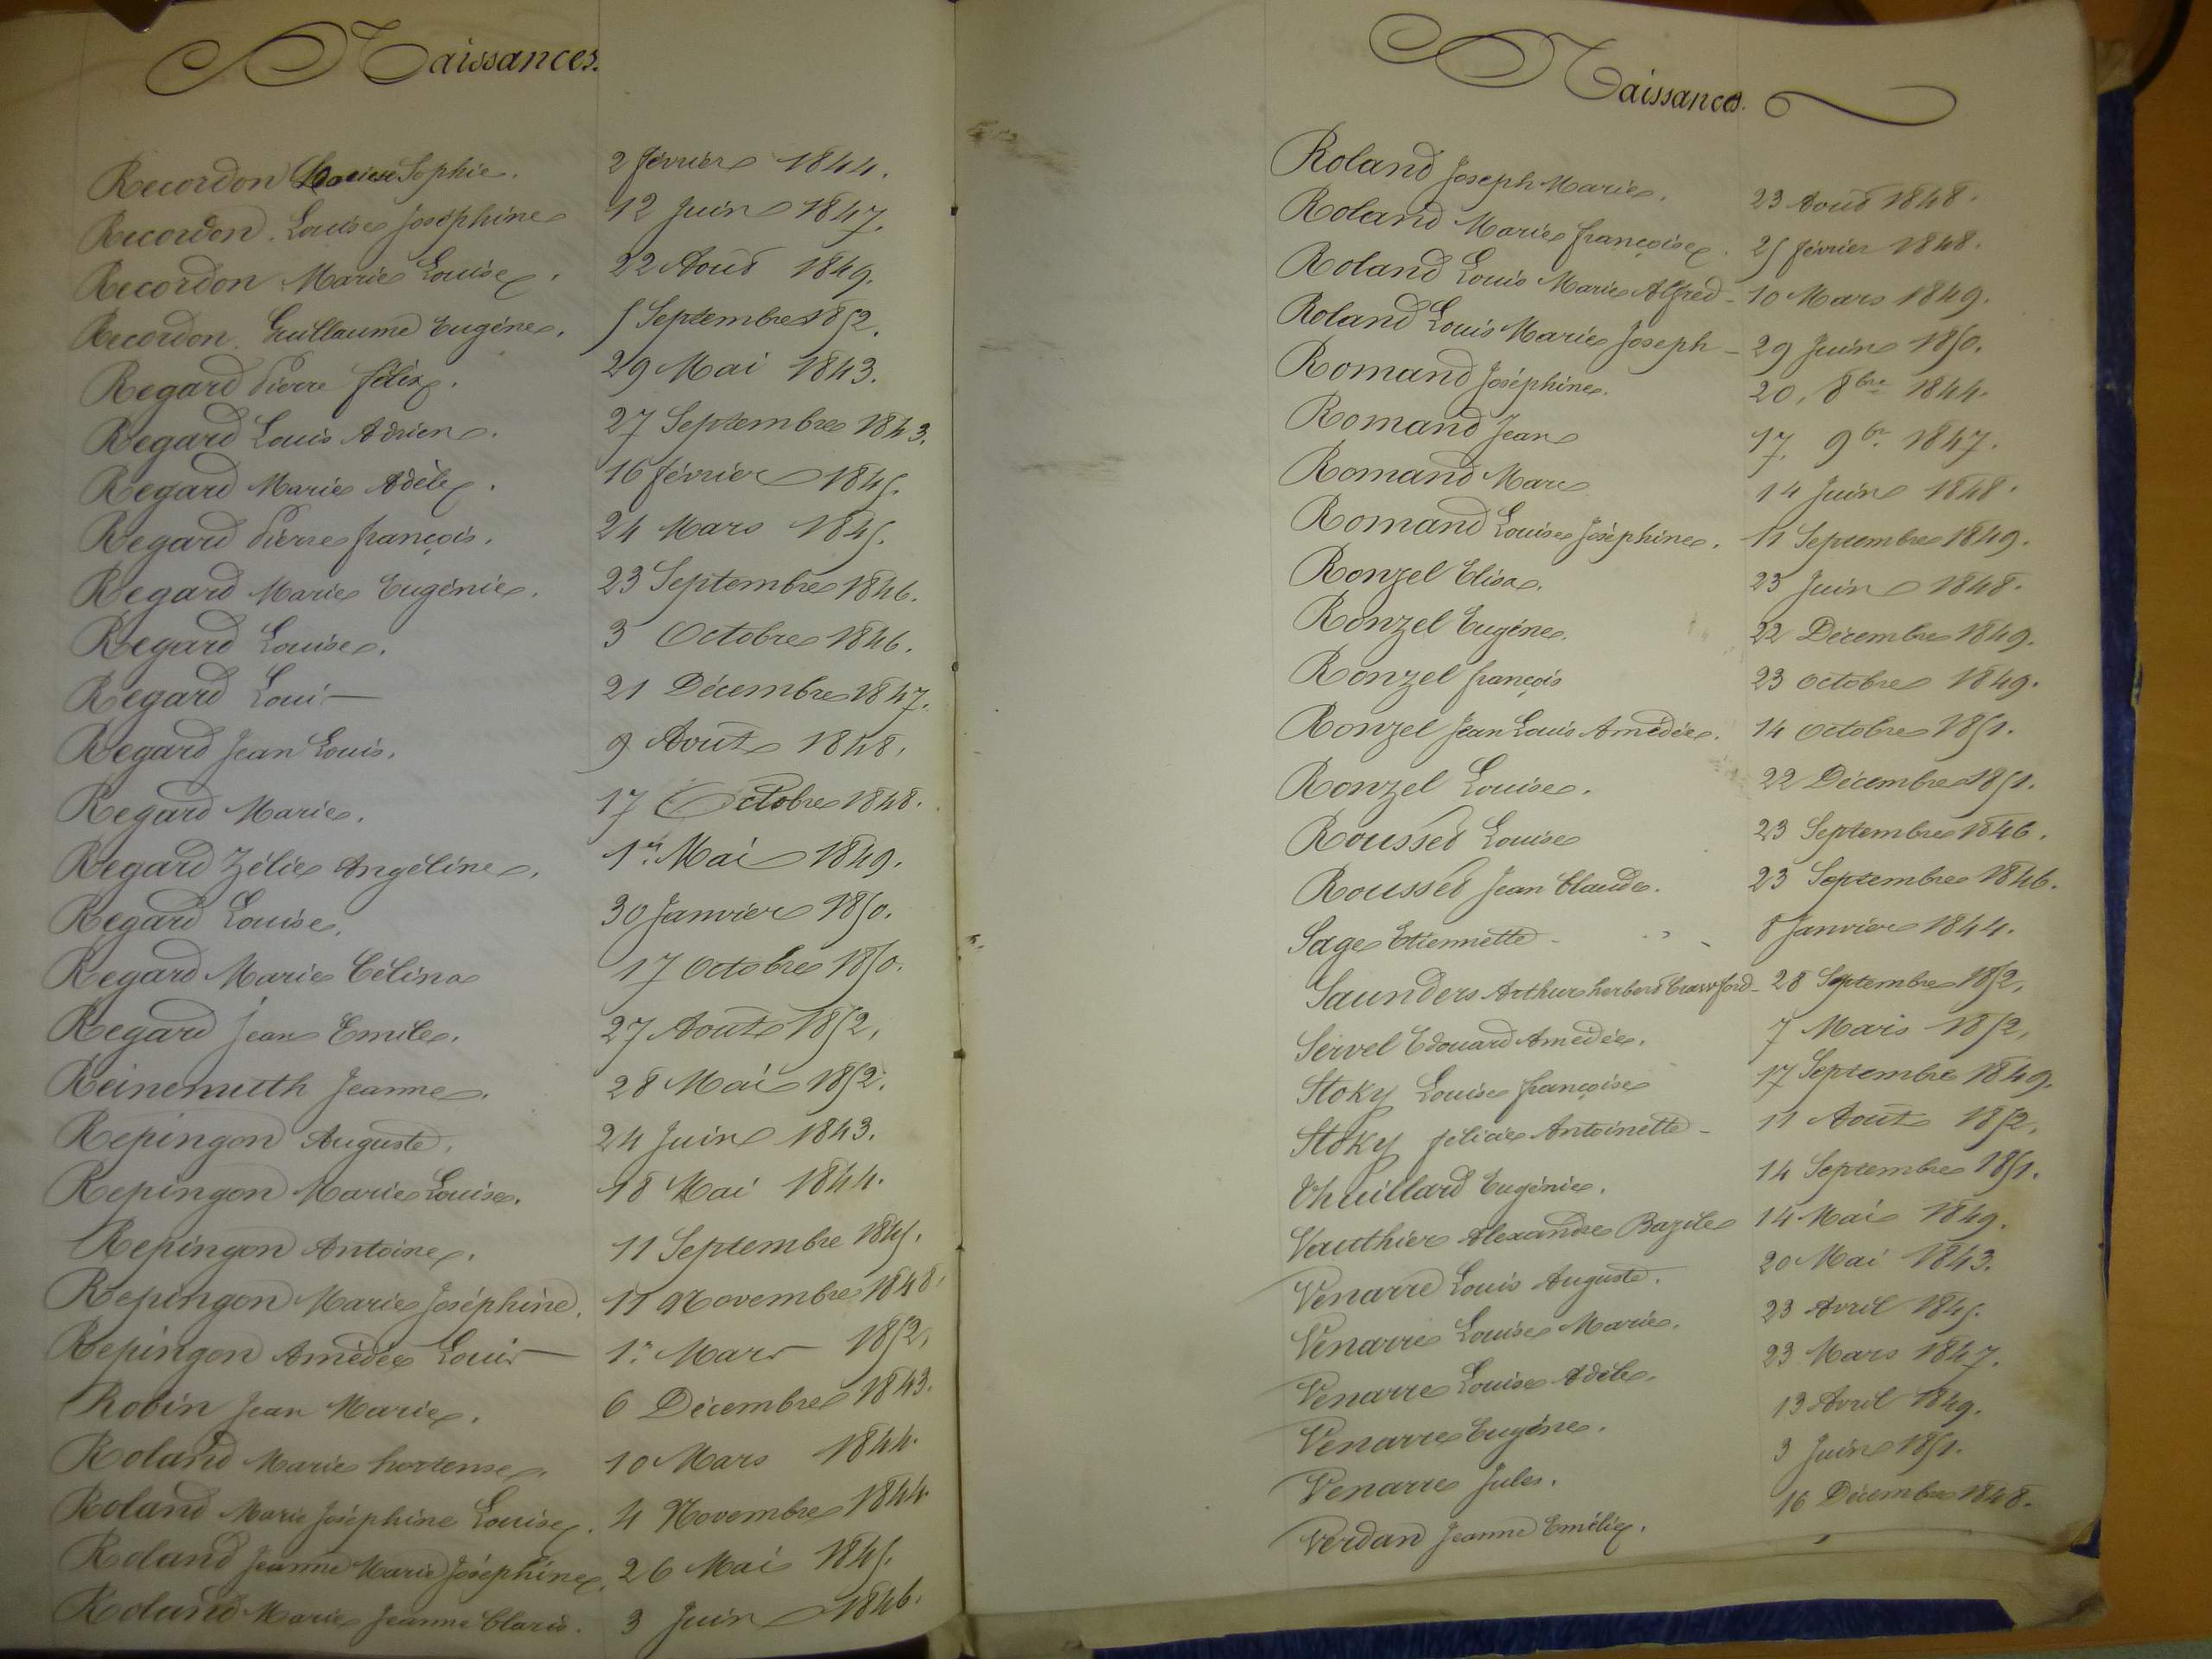 Naissances.
Recordon Sophie. 2 février 1844.
Recordon. Louise Joséphine 12 Juin 1847.
Recordon Marie Louise. 22 Aout 1849.
Recordon. Guillaume Eugène. 5 Septembre 1852.
Regard Pierre félix. 29 Mai 1843.
Regard Louis Adrien. 27 Septembre 1843.
Regard Marie Adèle. 16 février 1845.
Regard Pierre françois. 24 Mars 1845.
Regard Marie Eugénie. 23 Septembre 1846.
Regard Louise. 3 Octobre 1846.
Regard Louis 21 Décembre 1847.
Regard Jean Louis. 9 Aout 1848.
Regard Marie. 17 Octobre 1848.
Regard Zélie Angéline. 1er Mai 1849.
Regard Louise. 30 Janvier 1850.
Regard Marie Célina 17 Octobre 1850.
Regard Jean Emile. 27 Aout 1852.
Reinemuth Jeanne. 28 Mai 1852.
Repingon Auguste. 24 Juin 1843.
Repingon Marie Louise. 18 Mai 1844.
Repingon Antoine. 11 Septembre 1845.
Repingon Marie Joséphine. 11 Novembre 1848.
Repingon Amédée Louis 1er Mars 1852.
Robin Jean Marie. 6 Décembre 1843.
Roland Marie hortense. 10 Mars 1844.
Roland Marie Joséphine Louise. 4 Novembre 1844.
Roland Jeanne Marie Joséphine. 26 Mai 1845.
Roland Marie Jeanne Claris. 3 Juin 1846.
Naissances.
Roland Joseph Marie. 23 Aout 1848.
Roland Marie françoise. 25 février 1848.
Roland Louis Marie Alfred - 10 Mars 1849.
Roland Louis Marie Joseph - 29 Juin 1850.
Romand Joséphine. 20, 8bre 1844.
Romand Jean 17, 9br 1847.
Romand Marc 14 Juin 1848.
Romand Louise Joséphine. 11 Septembre 1849.
Ronzel Elisa. 23 Juin 1848.
Ronzel Eugène. 22 Décembre 1849.
Ronzel françois 23 Octobre 1849.
Ronzel Jean Louis Amédée. 14 Octobre 1851.
Ronzel Louise. 22 Décembre 1851.
Rousset Louise 23 Septembre 1846.
Rousset Jean Claude. 23 Septembre 1846.
Sage Etiennette - 8 Janvier 1844.
Saunders Arthur herbert Crawford - 28 Septembre 1852.
Servel Edouard Amédée. 7 Mars 1852.
Stoky Louise françoise 17 Septembre 1849.
Stoky félicie Antoinette - 11 Aout 1852.
Thuillard Eugénie. 14 Septembre 1851.
Vauthier Alexandre Bazile 14 Mai 1849.
Venarre Louis Auguste. 20 Mai 1843.
Venarre Louise Marie. 23 Avril 1845.
Venarre Louise Adèle. 23 Mars 1847.
Venarre Eugène. 13 Avril 1849.
Venarre Jules. 3 Juin 1851.
Verdan Jeanne Emélie. 16 Décembre 1848.